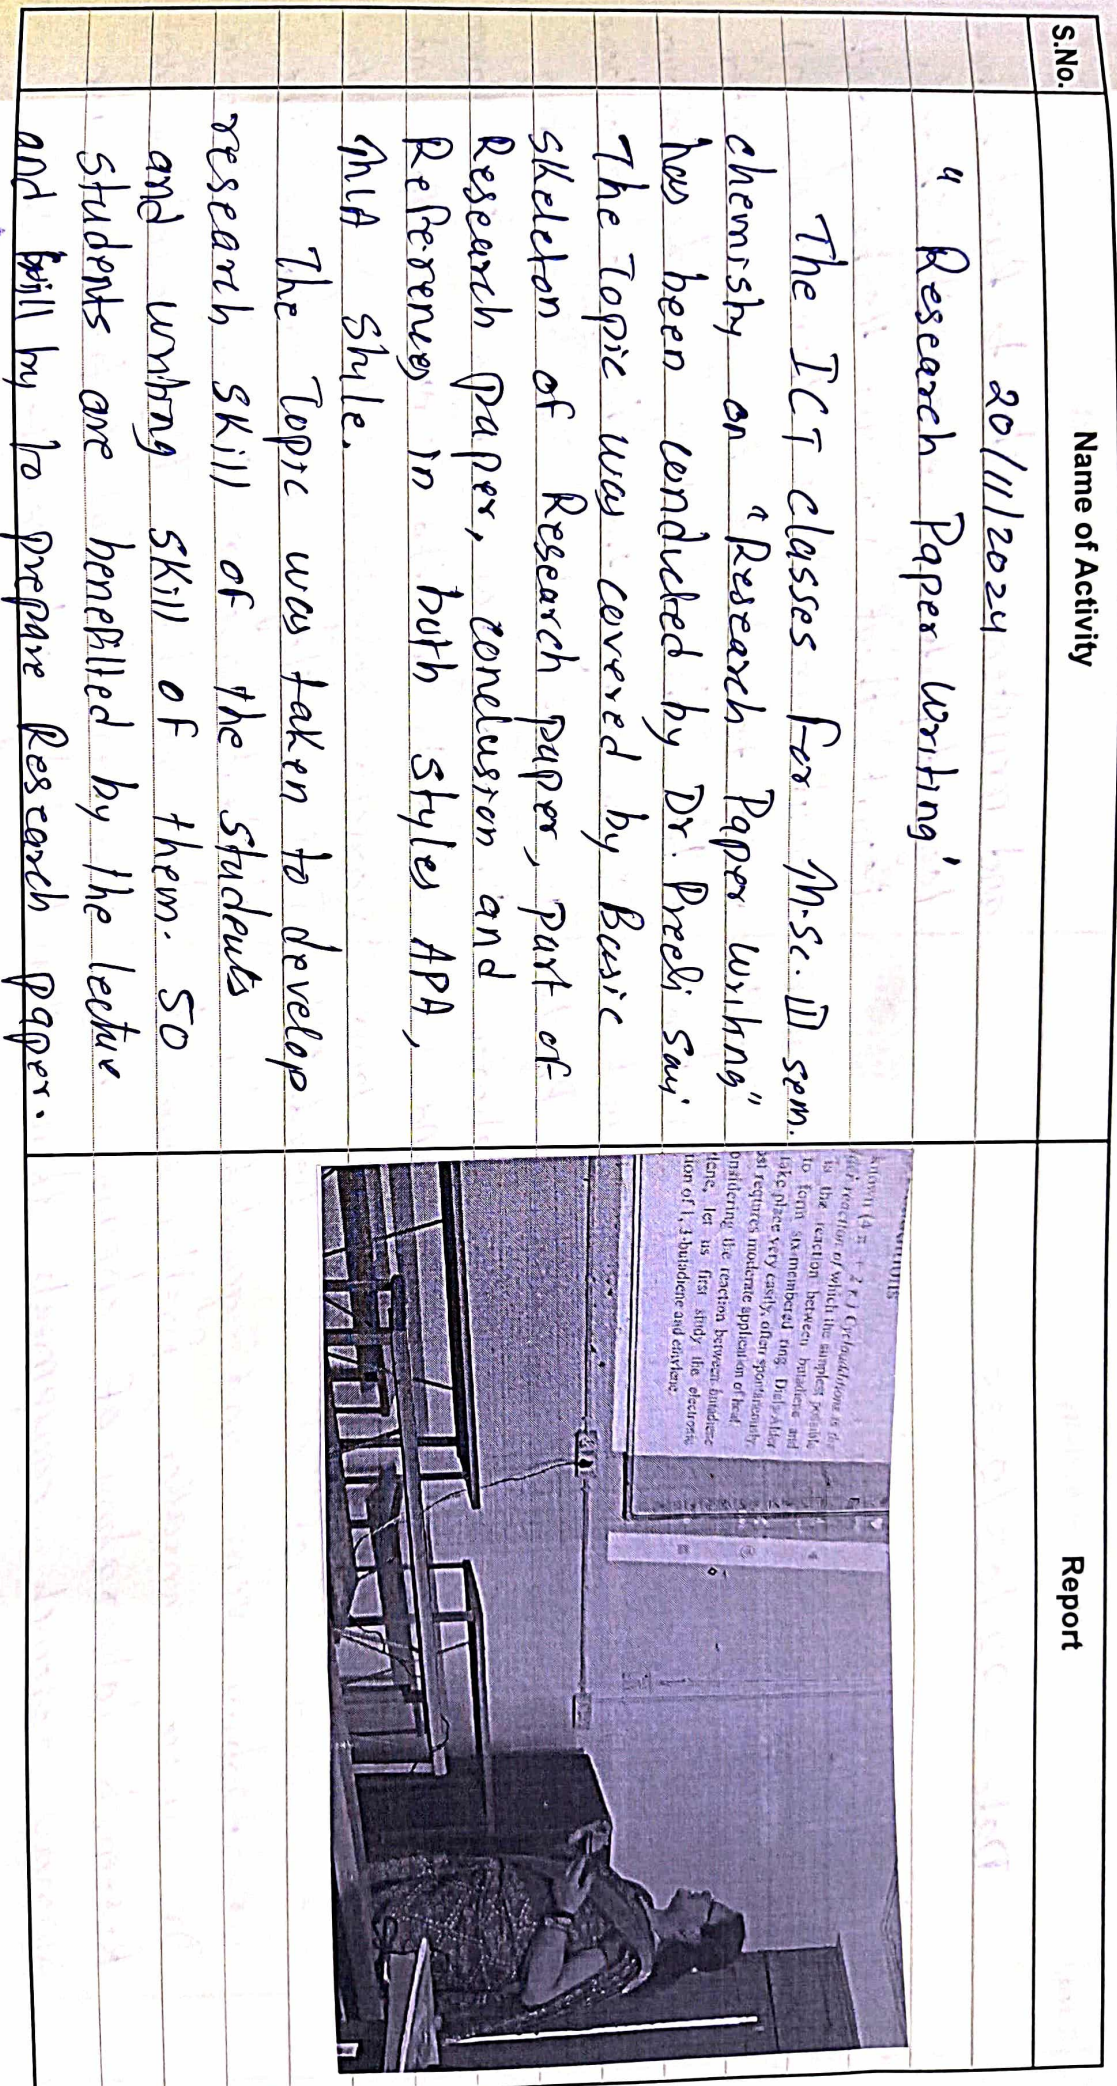 S.No.
Name of Activity
Report
20/11/2024
" Research Paper Writing'
The ICT classes for M.Sc. III sem.
chemistry on "Research Paper Writing"
has been conducted by Dr. Preeti
The Topic was covered by Basic
skeleton of Research paper, part of
Research paper, conclusion and
References in both styles APA,
MLA style.
The Topic was taken to develop
research skill of the students
and writing skill of them. 50
students are benefitted by the lecture
and will try to prepare Research paper.
is the reaction of which the simplest possible
to form six-membered ring. Diels-Alder
take place very easily, often spontaneously,
requires moderate application of heat.
onsidering the reaction between butadiene
lene, let us first study the electronic
tion of 1, 3-butadiene and ethylene.